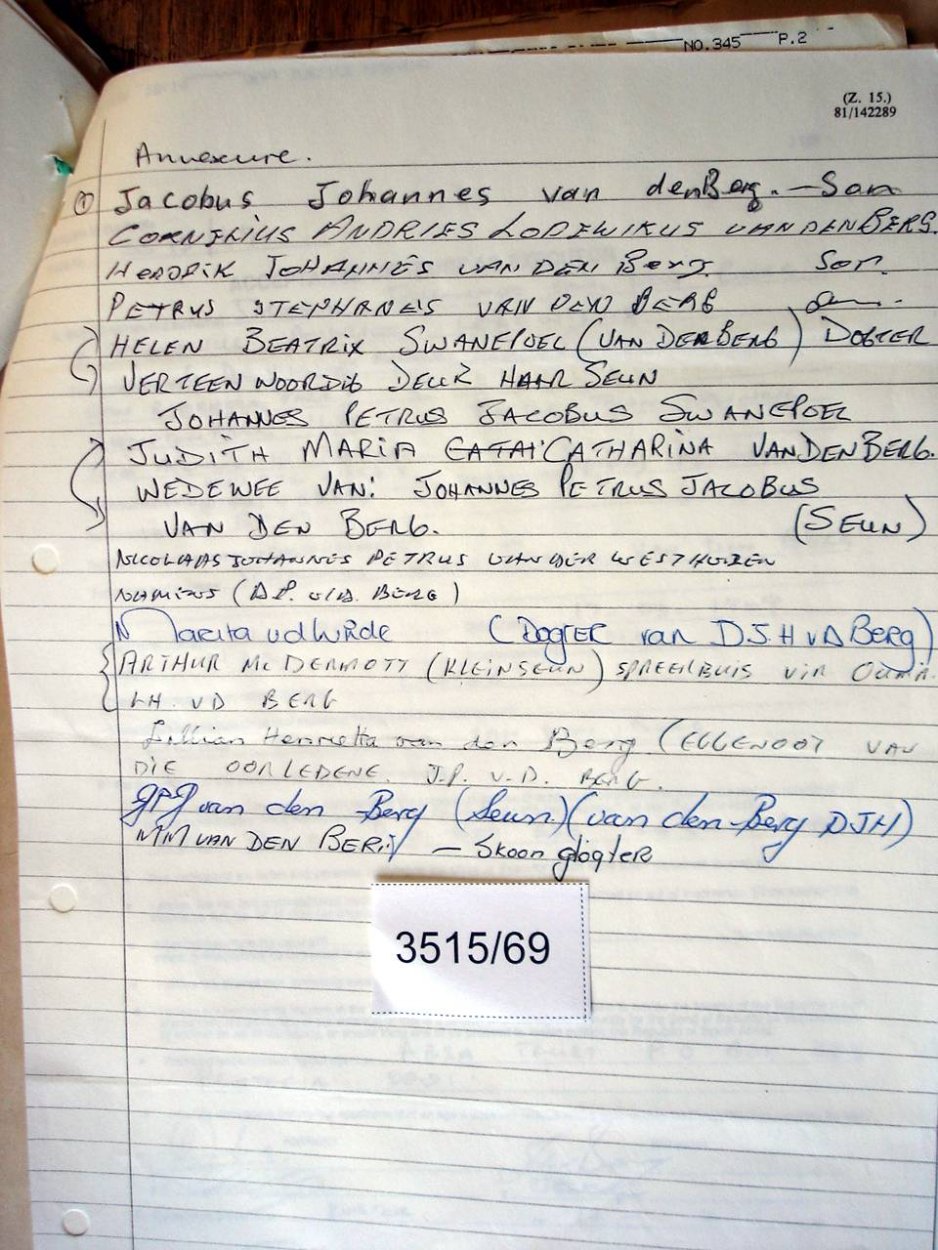 NO.345 P.2
(Z. 15.)
81/142289
Annexure.
① Jacobus Johannes van denBerg. — Son
CORNELIUS ANDRIES LODEWIKUS VANDENBERG.
HENDRIK JOHANNES VAN DEN Berg. Son.
PETRUS STEPHANUS VAN DEN BERG
HELEN BEATRIX SWANEPOEL (VAN DEN BERG) DOGTER
VERTEENWOORDIG DEUR HAAR SEUN
JOHANNES PETRUS JACOBUS SWANEPOEL
JUDITH MARIA CATHARINA VANDENBERG.
WEDEWEE VAN: JOHANNES PETRUS JACOBUS
VAN DEN BERG. (SEUN)
NICOLAAS JOHANNES PETRUS VAN DER WESTHUIZEN
NAMENS (D.P. v/d. BERG)
Marita vd Walde (Dogter van D.J.H vd Berg)
ARTHUR McDERMOTT (KLEINSEUN) SPREEKBUIS VIR OUMA.
LH. VD BERG
Lillian Henrietta van den Berg (EGGENOOT VAN
DIE OORLEDENE. J.P. V.D. BERG.
JPJ van den Berg (Seun.) (van den Berg DJH)
MM VAN DEN BERG — Skoondogter
3515/69